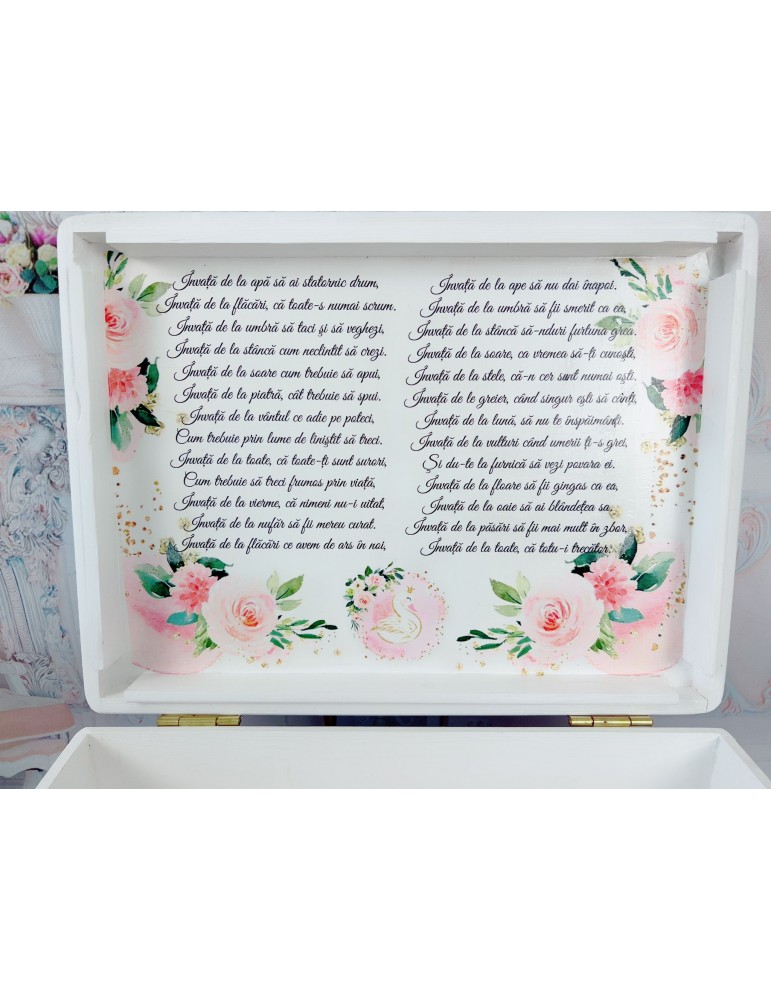 Învață de la apă să ai statornic drum,
Învață de la flăcări, că toate-s numai scrum.
Învață de la umbră să taci și să veghezi,
Învață de la stâncă cum neclintit să crezi.
Învață de la soare cum trebuie să apui,
Învață de la piatră, cât trebuie să spui.
Învață de la vântul ce adie pe poteci,
Cum trebuie prin lume de liniștit să treci.
Învață de la toate, că toate-ți sunt surori,
Cum trebuie să treci frumos prin viață,
Învață de la vierme, că nimeni nu-i uitat,
Învață de la nufăr să fii mereu curat.
Învață de la flăcări ce avem de ars în noi,
Învață de la ape să nu dai înapoi.
Învață de la umbră să fii smerit ca ea,
Învață de la stâncă să-nduri furtuna grea.
Învață de la soare, ca vremea să-ți cunoști,
Învață de la stele, că-n cer sunt numai oști.
Învață de le greier, când singur ești să cânți,
Învață de la lună, să nu te înspăimânți.
Învață de la vulturi când umerii ți-s grei,
Și du-te la furnică să vezi povara ei.
Învață de la floare să fii gingas ca ea,
Învață de la oaie să ai blândețea sa.
Învață de la păsări să fii mai mult în zbor,
Învață de la toate, că totu-i trecător.